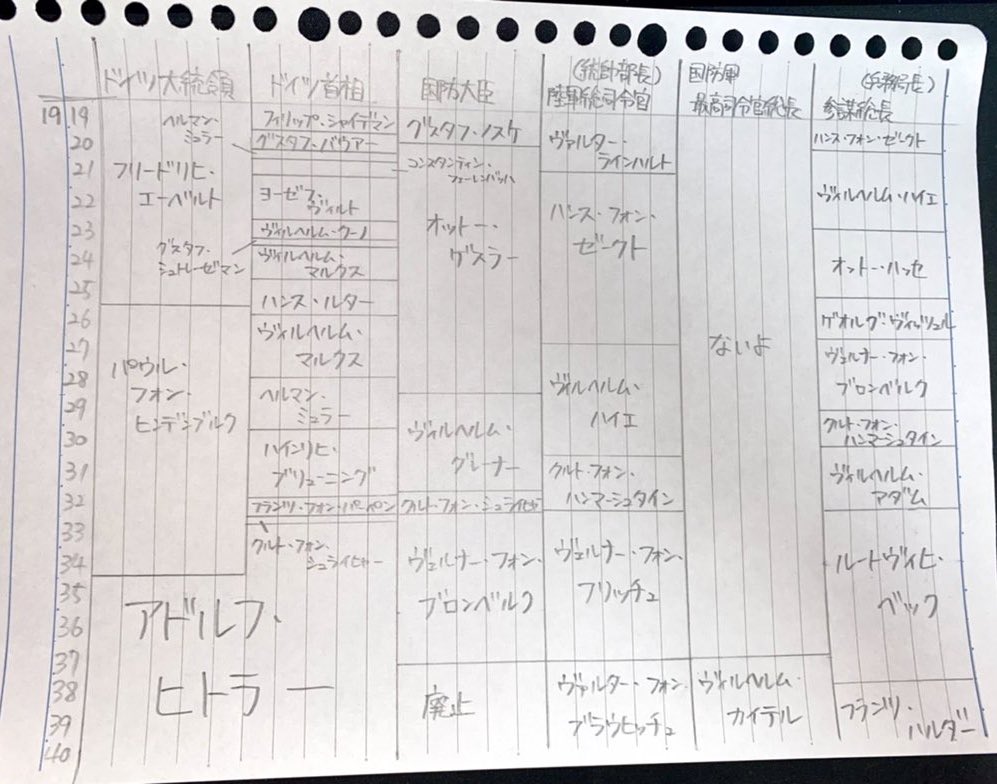 ドイツ大統領
ドイツ首相
国防大臣
(統帥部長)
陸軍総司令官
国防軍
最高司令官総長
(兵務局長)
参謀総長
1919
20
21
22
23
24
25
26
27
28
29
30
31
32
33
34
35
36
37
38
39
40
フリードリヒ・
エーベルト
パウル・
フォン・
ヒンデンブルク
アドルフ・
ヒトラー
ヘルマン・
ミュラー
グスタフ・
シュトレーゼマン
フィリップ・シャイデマン
グスタフ・バウアー
ヨーゼフ・
ヴィルト
ヴィルヘルム・クーノ
ヴィルヘルム・
マルクス
ハンス・ルター
ヴィルヘルム・
マルクス
ヘルマン・
ミュラー
ハインリヒ・
ブリューニング
フランツ・フォン・パーペン
クルト・フォン・
シュライヒャー
グスタフ・ノスケ
コンスタンティン・
フェーレンバッハ
オットー・
ゲスラー
ヴィルヘルム・
グレーナー
クルト・フォン・シュライヒャー
ヴェルナー・フォン・
ブロンベルク
廃止
ヴァルター・
ラインハルト
ハンス・フォン・
ゼークト
ヴィルヘルム・
ハイエ
クルト・フォン・
ハンマーシュタイン
ヴェルナー・フォン・
フリッチュ
ヴァルター・フォン・
ブラウヒッチュ
ないよ
ヴィルヘルム・
カイテル
ハンス・フォン・ゼークト
ヴィルヘルム・ハイエ
オットー・ハッセ
ゲオルグ・ヴィッツェル
ヴェルナー・フォン・
ブロンベルク
クルト・フォン・
ハンマーシュタイン
ヴィルヘルム・
アダム
ルートヴィヒ・
ベック
フランツ・
ハルダー